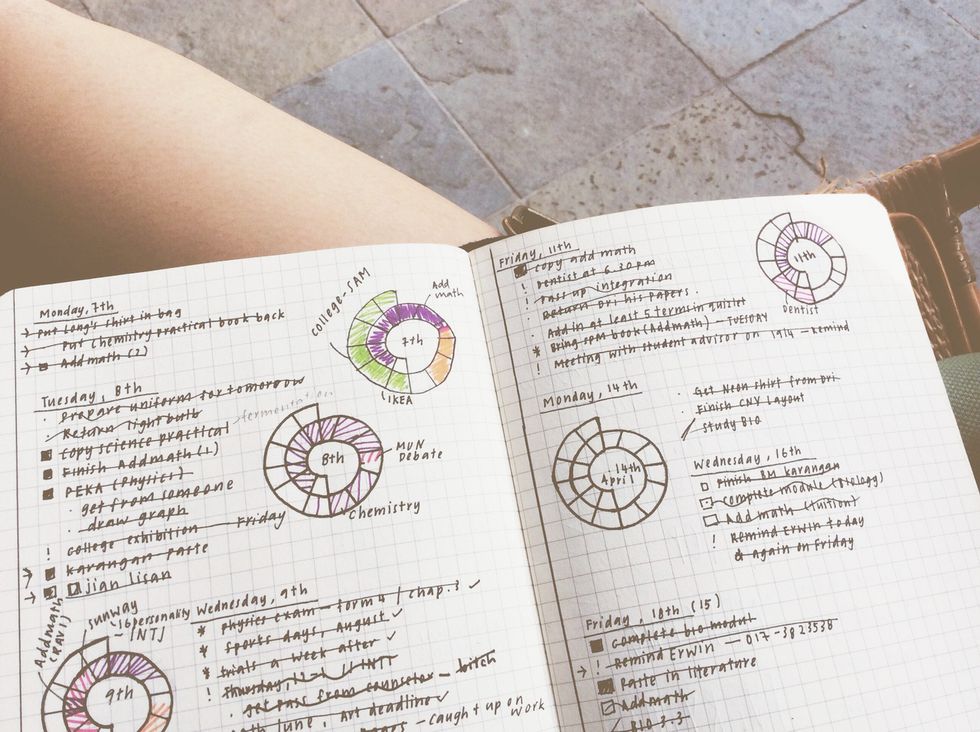 Monday, 7th
→ Put Long's shirt in bag
→ Put Chemistry practical book back
→ Add math (2)
college-SAM
Add math
7th
IKEA
Tuesday, 8th
. prepare uniform for tomorrow
. Return light bulb
copy science practical
Finish Addmath (1)
PEKA (Physics)
. get from someone
. draw graph
! college exhibition — Friday
→ karangan paste
→ ujian lisan
fermentation
8th
MUN Debate
Chemistry
Addmath (RAVI)
sunway
~16personality
~ INTJ
9th
Wednesday, 9th
* physics exam — form 4 / chap. 3 ✓
* sports days, August ✓
* trials a week after ✓
! Thursday,
. get pass from counselor — bitch
June, Art deadline ✓
— Caught up on work
Friday, 11th
copy add math
! Dentist at 6.30 pm
! Pass up integration
. Return Dri his papers.
. Add in at least 5 terms in quizlet
* Bring SPM book (Addmath) — TUESDAY
! Meeting with student advisor on — remind
11th
Dentist
Monday, 14th
14th April
. Get Neon shirt from Dri
. Finish CNY Layout
/ Study BIO
Wednesday, 16th
Finish BM karangan
Complete module (Biology)
Add math (tuition)
! Remind Erwin today
& again on Friday
Friday, 18th (15)
Complete bio modul
→ ! Remind Erwin — 017-3823538
Paste in literature
Addmath
BIO 3.3